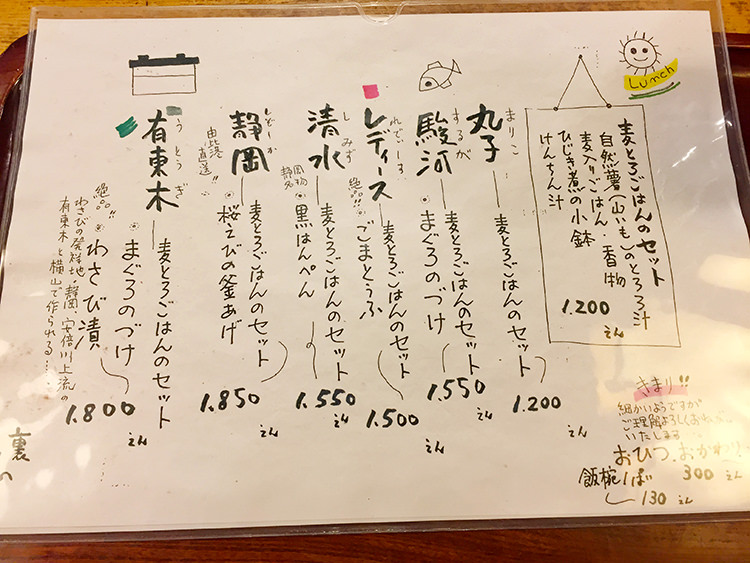 Lunch
麦とろごはんのセット
自然薯(山いも)のとろろ汁
麦入りごはん・香物
ひじき煮の小鉢
けんちん汁
1.200えん
まりこ
丸子
麦とろごはんのセット
1.200えん
するが
駿河
麦とろごはんのセット
まぐろのづけ
1.550えん
れでぃーす
レディース
麦とろごはんのセット
絶品!!
ごまとうふ
1.500えん
しみず
清水
麦とろごはんのセット
静岡名物
黒はんぺん
1.550えん
しずおか
静岡
麦とろごはんのセット
由比港直送!!
桜えびの釜あげ
1.850えん
うとうぎ
有東木
麦とろごはんのセット
まぐろのづけ
絶品!!
わさび漬
わさびの発祥地・静岡、安倍川上流の
有東木と横山で作られる……
1.800えん
きまり!!
細かいようですが
ご理解よろしくおねがい
いたします
おひつ、おかわり
300えん
飯椀1ぱい
130えん
裏
の